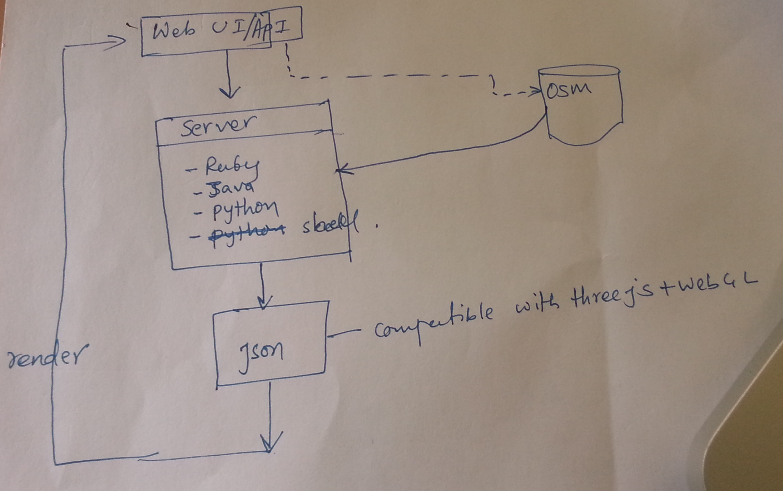 Web UI/ApI
OSM
Server
- Ruby
- Java
- python
- python
json
compatible with threejs+WebGL
render